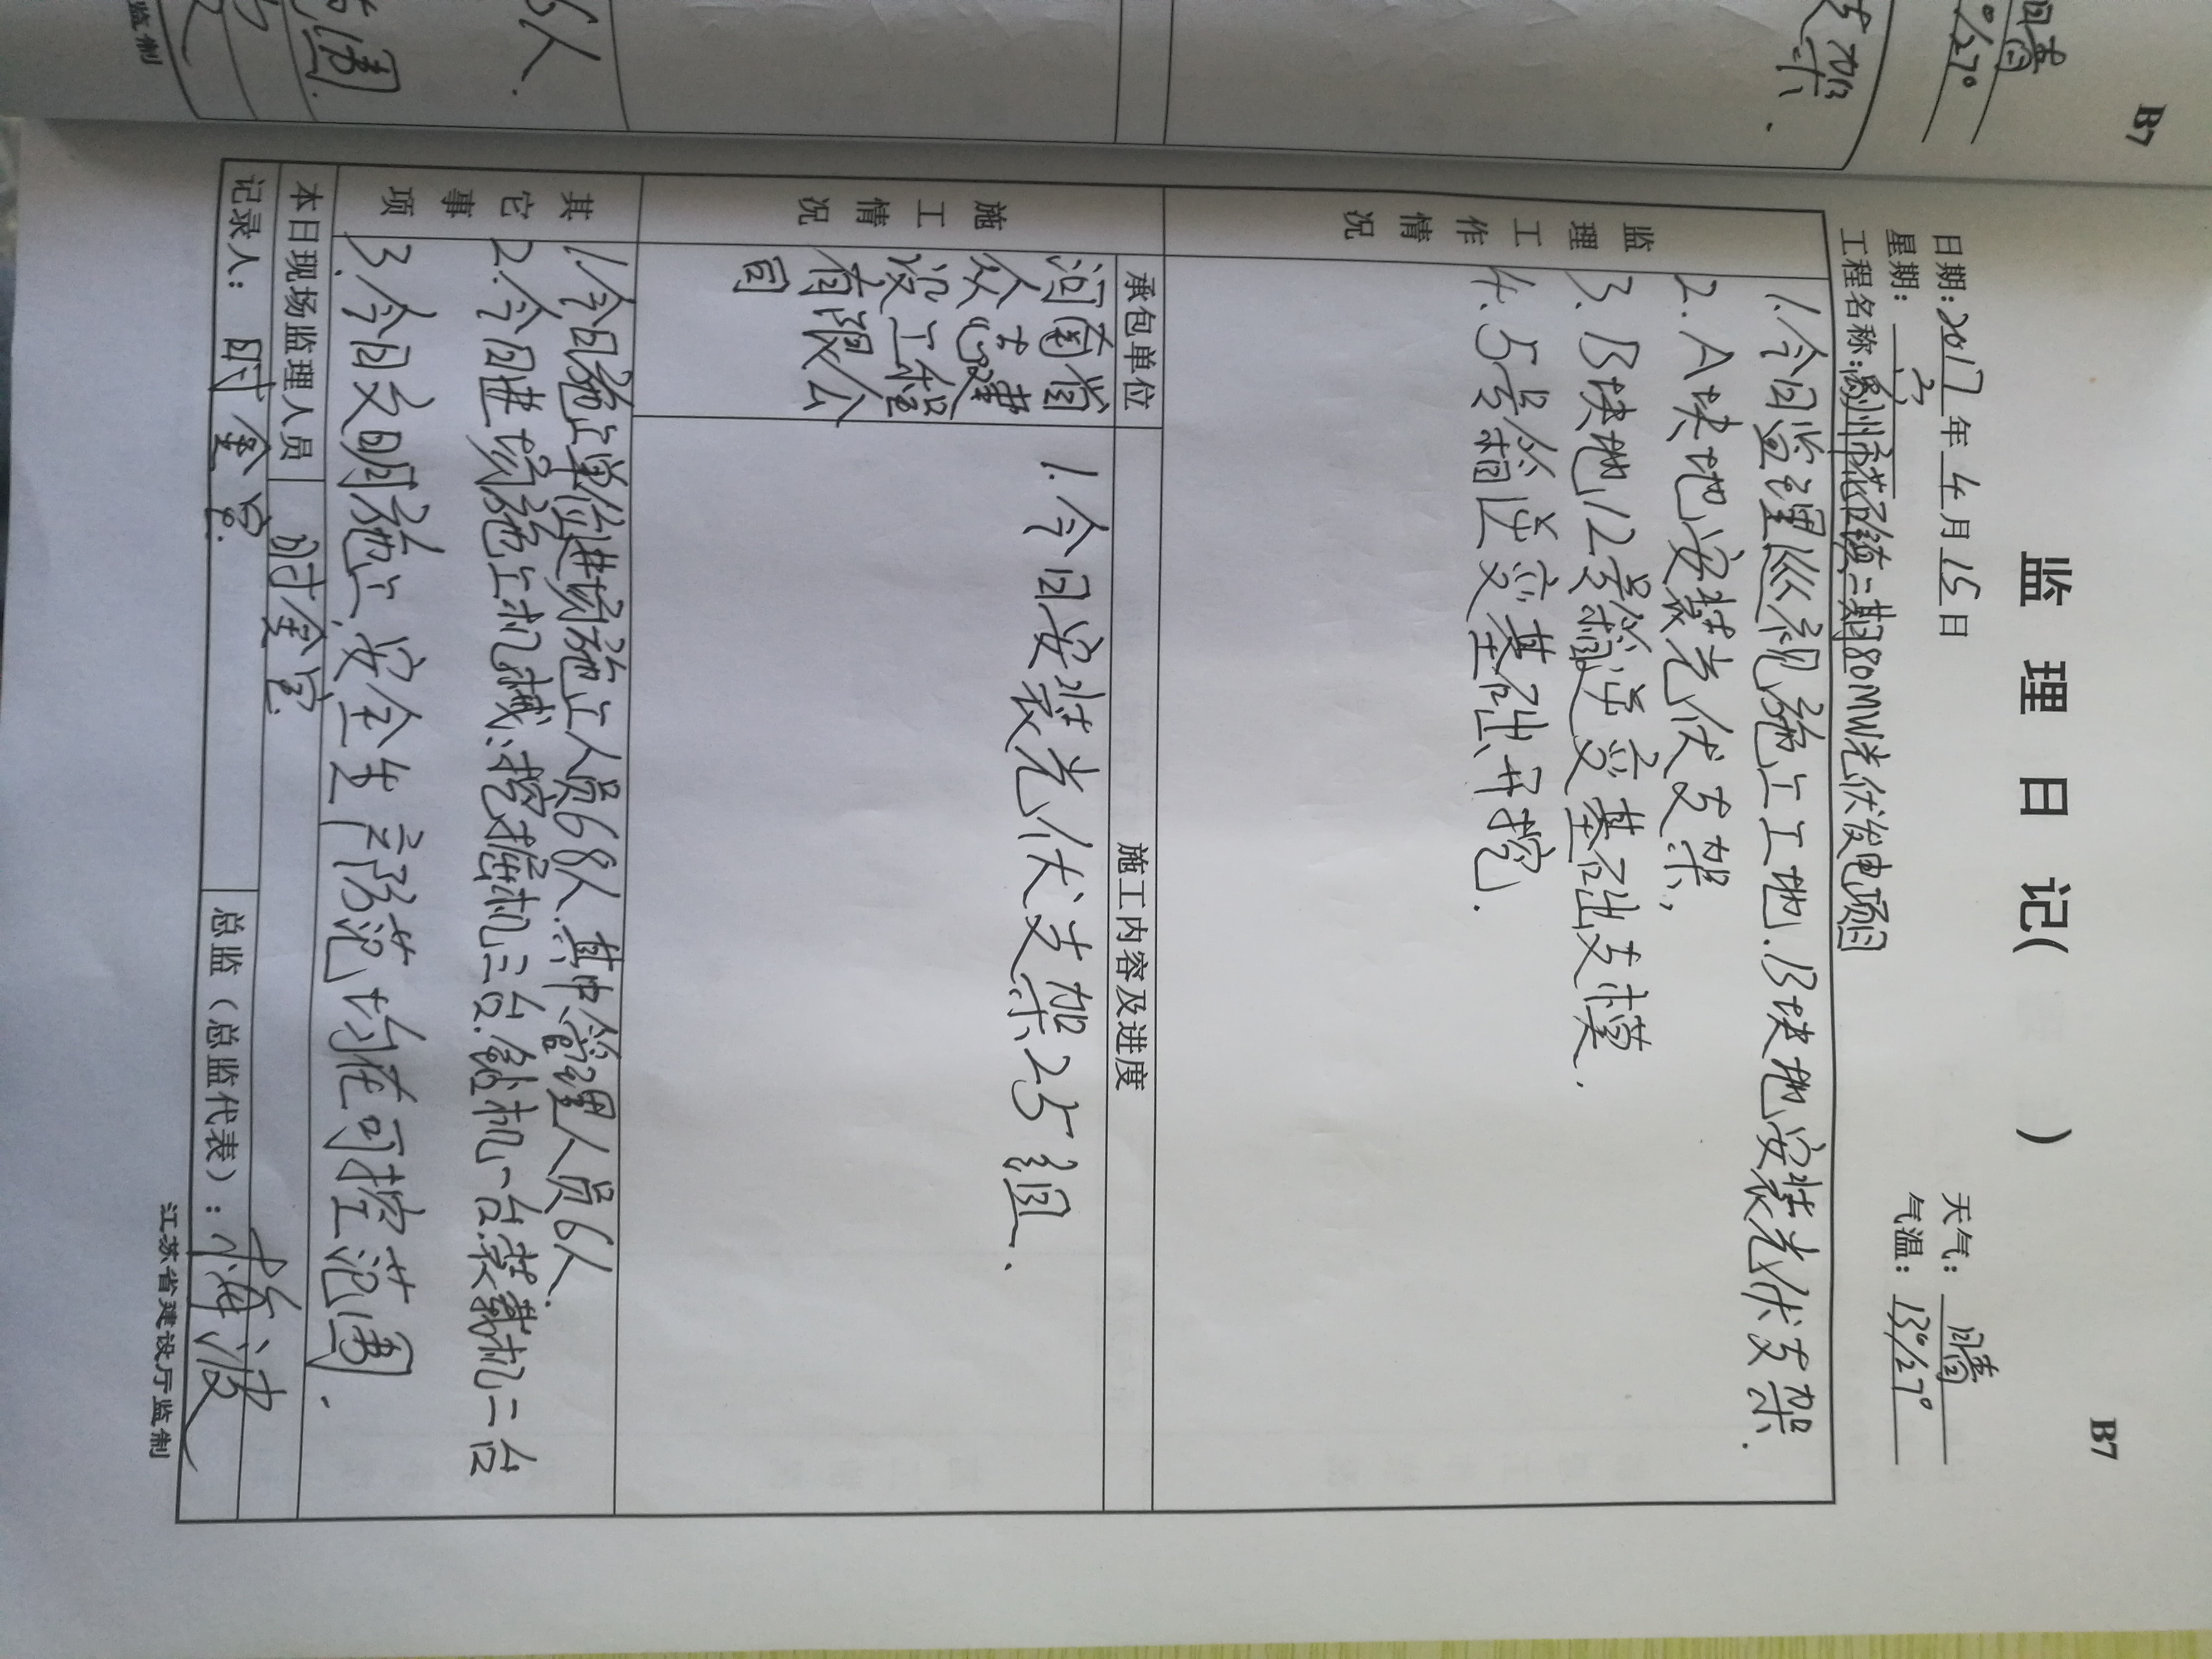 B7
监理日记( )
日期:2017年4月15日 天气:晴
星期: 气温:13°/27°
工程名称:禹州市花石镇二期80MW光伏发电项目
监理工作情况
1.今日监理巡视施工工地.B块地安装光伏支架.
2.A块地安装光伏支架,
3.B块地12号箱逆变基础支模.
4.5号箱逆变基础开挖.
施工情况
承包单位 施工内容及进度
河南省
众志建
设工程
有限公
司
1.今日安装光伏支架25组.
其它事项
1.今日施工单位进场施工人员68人.其中管理人员6人.
2.今日进场施工机械:挖掘机三台.钻机一台.装载机二台
3.今日文明施工.安全生产防范均在可控范围.
本日现场监理人员 时金
记录人: 时金 总监(总监代表):
江苏省建设厅监制
B7
晴
/27°
支架.
6人.
范围.
监制